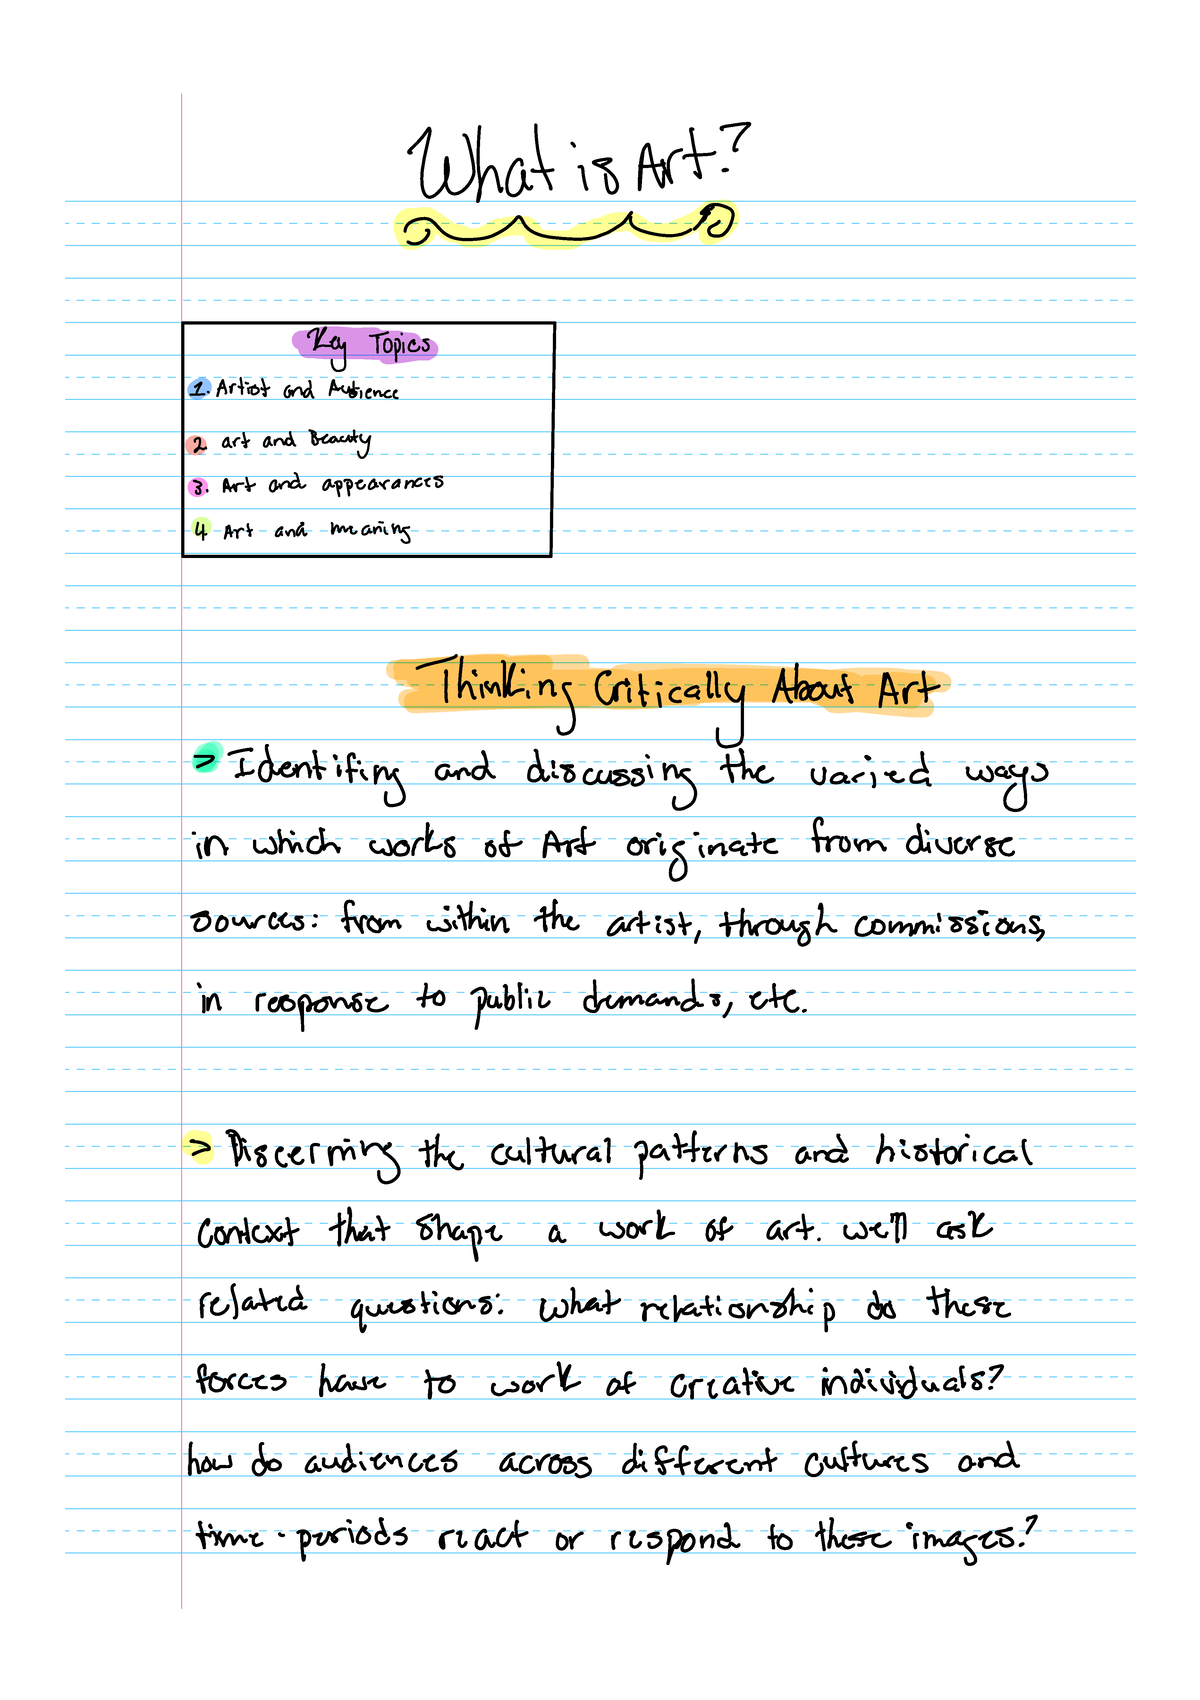 What is Art?
Key Topics
1. Artist and Audience
2 art and Beauty
3. Art and appearances
4 Art and meaning
Thinking Critically About Art
> Identifing and discussing the varied ways
in which works of Art originate from diverse
sources: from within the artist, through commissions,
in response to public demands, etc.
> Discerning the cultural patterns and historical
context that shape a work of art. we'll ask
related questions: what relationship do these
forces have to work of creative individuals?
how do audiences across different cultures and
time-periods react or respond to these images?